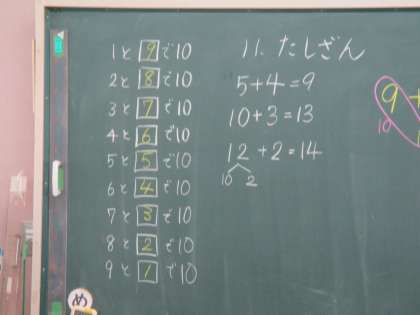 1と9で10
2と8で10
3と7で10
4と6で10
5と5で10
6と4で10
7と3で10
8と2で10
9と1で10
め
11. たしざん
5+4=9
10+3=13
12+2=14
10 2
9+
10